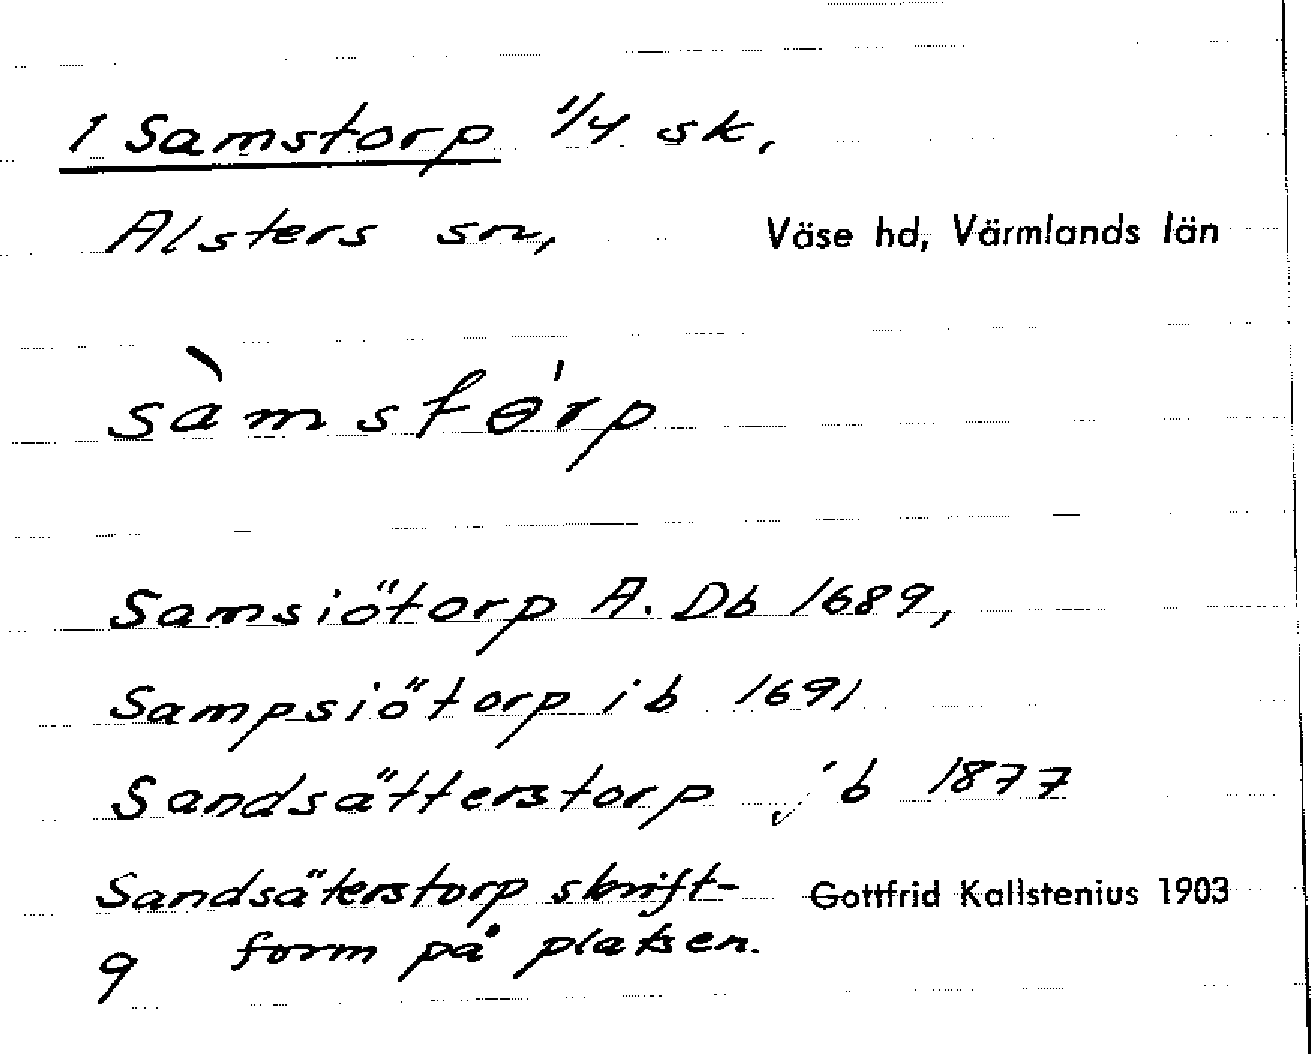 1 Samstorp 1/4 sk,
Alsters sn, Väse hd, Värmlands län
sàmstɵ́rp
Samsiötorp A. Db 1689,
Sampsiötorp ib 1691
Sandsätterstorp jb 1877
Sandsäterstorp skrift- Gottfrid Kallstenius 1903
9 form på platsen.